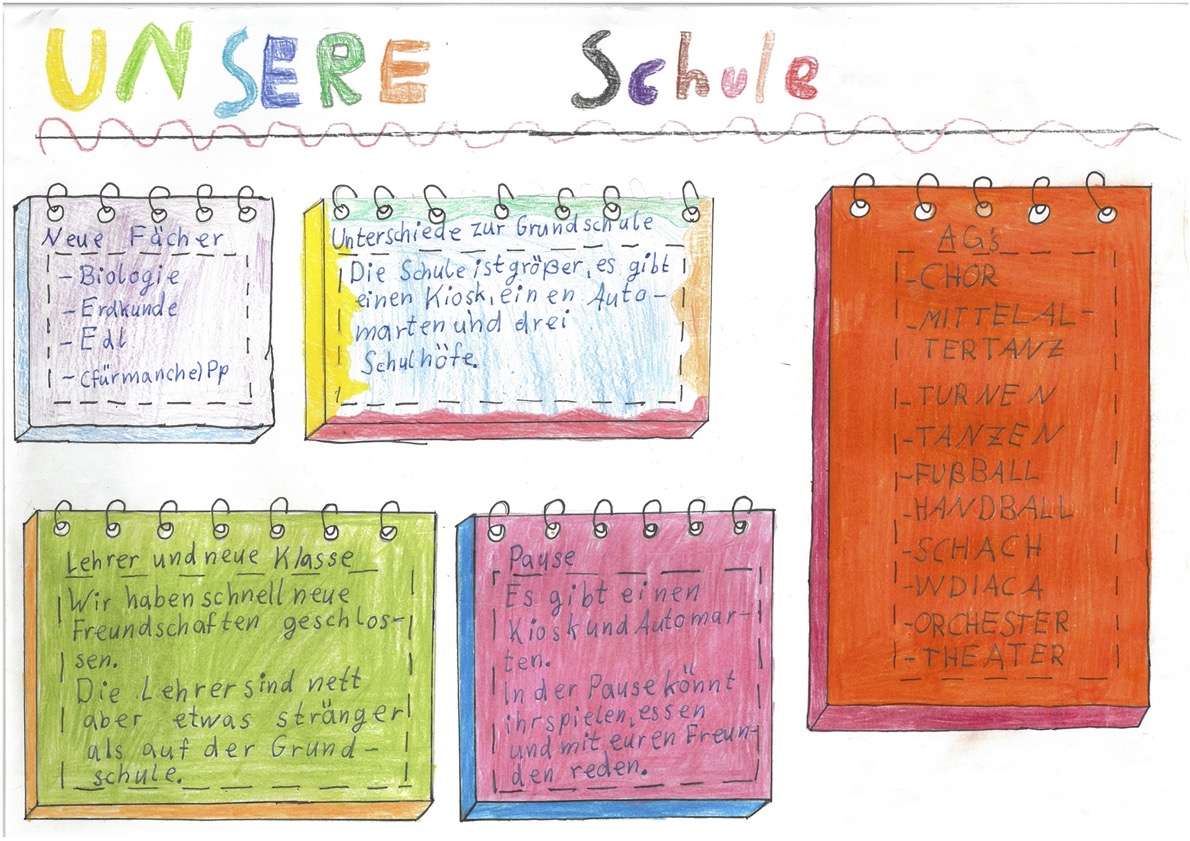 UNSERE Schule
Neue Fächer
- Biologie
- Erdkunde
- Edl
- (für manche) Pp
Unterschiede zur Grundschule
Die Schule ist größer, es gibt
einen Kiosk, einen Auto-
marten und drei
Schulhöfe.
AG's
- CHOR
- MITTELAL-
TERTANZ
- TURNEN
- TANZEN
- FUßBALL
- HANDBALL
- SCHACH
- WDIACA
- ORCHESTER
- THEATER
Lehrer und neue Klasse
Wir haben schnell neue
Freundschaften geschlos-
sen.
Die Lehrer sind nett
aber etwas stränger
als auf der Grund-
schule.
Pause
Es gibt einen
Kiosk und Automar-
ten.
In der Pause könnt
ihr spielen, essen
und mit euren Freun-
den reden.